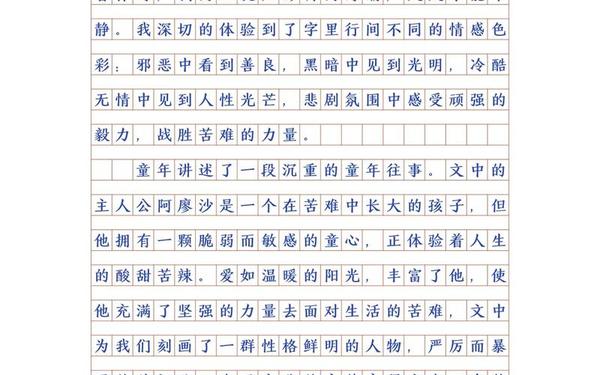 静。我深切的体验到了字里行间不同的情感色
彩：邪恶中看到善良，黑暗中见到光明，冷酷
无情中见到人性光芒，悲剧氛围中感受顽强的
毅力，战胜苦难的力量。
童年讲述了一段沉重的童年往事。文中的
主人公阿廖沙是一个在苦难中长大的孩子，但
他拥有一颗脆弱而敏感的童心，正体验着人生
的酸甜苦辣。爱如温暖的阳光，丰富了他，使
他充满了坚强的力量去面对生活的苦难，文中
为我们刻画了一群性格鲜明的人物，严厉而暴